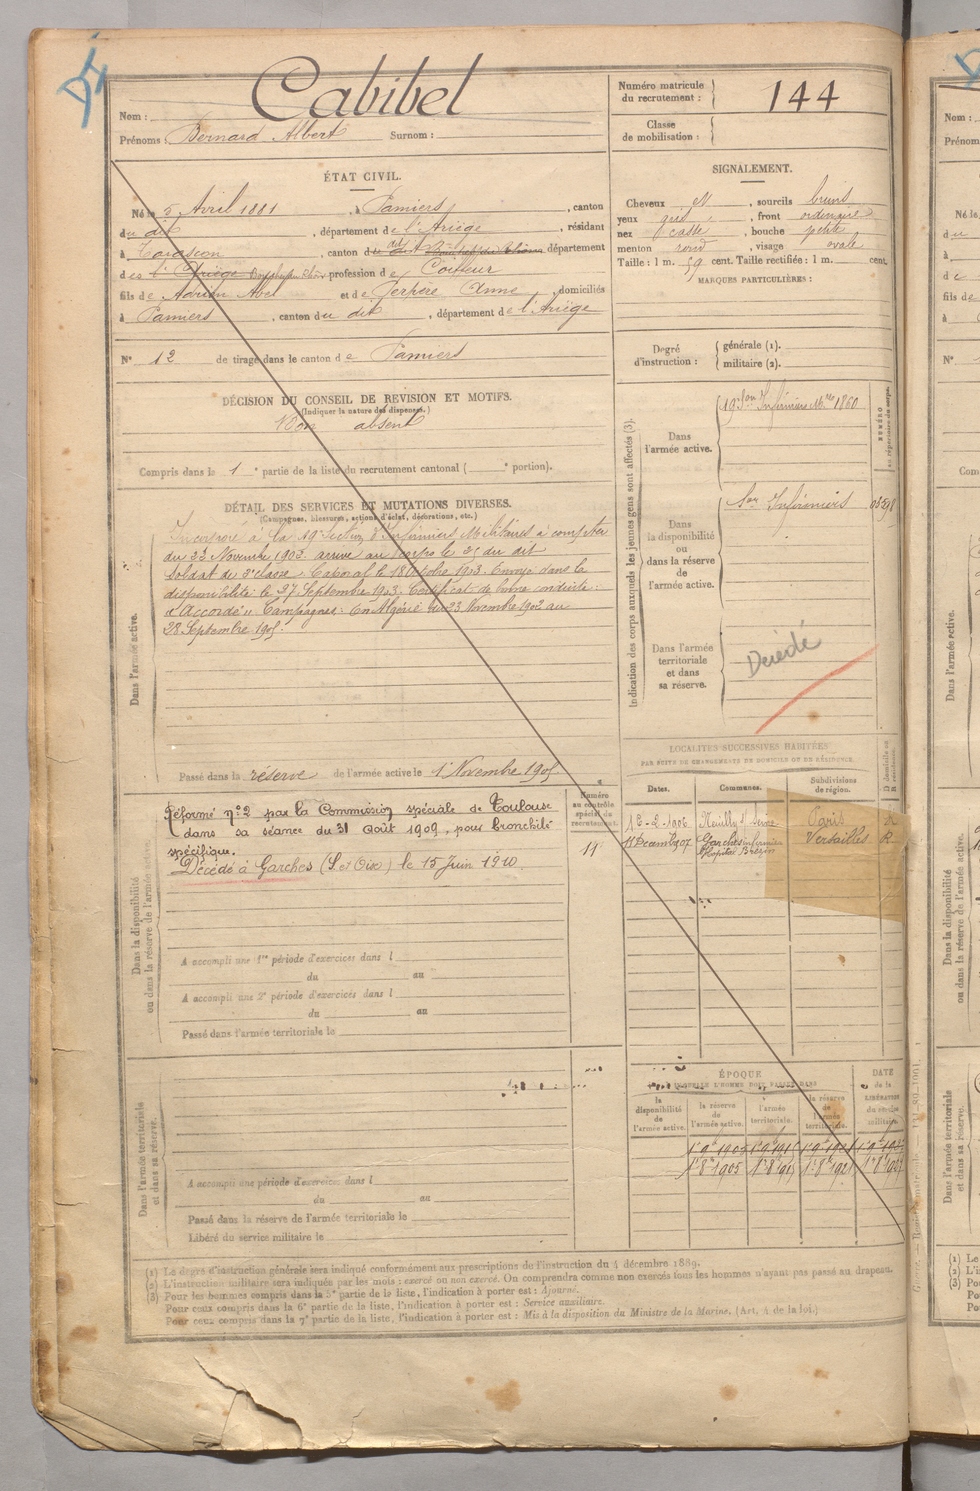 Cabibel
Nom :
Prénoms : Bernard Albert Surnom :
Numéro matricule du recrutement : 144
Classe de mobilisation :
ÉTAT CIVIL.
Né le 5 Avril 1881, à Pamiers, canton
du dit, département de l'Ariège, résidant
à Tarascon, canton du dit, département
de l'Ariège, profession de Coiffeur
fils de Adrien Abel et de Perpère Anne, domiciliés
à Pamiers, canton du dit, département de l'Ariège
N° 12 de tirage dans le canton de Pamiers
SIGNALEMENT.
Cheveux et, sourcils bruns
yeux gris, front ordinaire
nez cassé, bouche petite
menton rond, visage ovale
Taille : 1 m. 59 cent. Taille rectifiée : 1 m. cent.
MARQUES PARTICULIÈRES :
Degré d'instruction : générale (1).
militaire (2).
DÉCISION DU CONSEIL DE REVISION ET MOTIFS.
(Indiquer la nature des dispenses.)
Bon absent
Compris dans la 1e partie de la liste du recrutement cantonal ( e portion).
DÉTAIL DES SERVICES ET MUTATIONS DIVERSES.
(Campagnes, blessures, actions d'éclat, décorations, etc.)
Dans l'armée active.
Incorporé à la 19e Section d'Infirmiers Militaires à compter
du 23 Novembre 1902. arrivé au Corps le 21 du dit
Soldat de 2e classe. Caporal le 18 Octobre 1903. Envoyé dans la
disponibilité le 27 Septembre 1903. Certificat de bonne conduite :
"Accordé". Campagnes : En Algérie du 23 Novembre 1902 au
28 Septembre 1905.
Passé dans la réserve de l'armée active le 1er Novembre 1905
Indication des corps auxquels les jeunes gens sont affectés (3).
Dans l'armée active.
19e Son Infirmiers Mres 1860
NUMÉRO au répertoire du corps.
Dans la disponibilité ou dans la réserve de l'armée active.
Son Infirmiers
Dans l'armée territoriale et dans sa réserve.
Décédé
LOCALITÉS SUCCESSIVES HABITÉES
PAR SUITE DE CHANGEMENTS DE DOMICILE OU DE RÉSIDENCE.
Dates. Communes. Subdivisions de région. D domicile ou R résidence.
18-2-1906 Neuilly s/ Seine Paris R
11 Décemb 1907 Garches infirmier Hôpital Brézin Versailles R
Dans la disponibilité ou dans la réserve de l'armée active.
Numéro au contrôle spécial du recrutement.
Réformé n°2 par la Commission spéciale de Toulouse
dans sa séance du 31 Août 1909, pour bronchite
spécifique.
Décédé à Garches (S. et Oise) le 15 Juin 1910
A accompli une 1re période d'exercices dans l
du au
A accompli une 2e période d'exercices dans l
du au
Passé dans l'armée territoriale le
Dans l'armée territoriale et dans sa réserve.
A accompli une période d'exercices dans l
du au
Passé dans la réserve de l'armée territoriale le
Libéré du service militaire le
ÉPOQUE
À LAQUELLE L'HOMME DOIT PASSER DANS
la disponibilité de l'armée active.
la réserve de l'armée active.
l'armée territoriale.
la réserve de l'armée territoriale.
DATE de la LIBÉRATION du service militaire.
1er 8bre 1905 1er 8bre 1915 1er 8bre 1921 1er 8bre 1927
(1) Le degré d'instruction générale sera indiqué conformément aux prescriptions de l'instruction du 4 décembre 1889.
(2) L'instruction militaire sera indiquée par les mots : exercé ou non exercé. On comprendra comme non exercés tous les hommes n'ayant pas passé au drapeau.
(3) Pour les hommes compris dans la 5e partie de la liste, l'indication à porter est : Ajourné.
Pour ceux compris dans la 6e partie de la liste, l'indication à porter est : Service auxiliaire.
Pour ceux compris dans la 7e partie de la liste, l'indication à porter est : Mis à la disposition du Ministre de la Marine. (Art. 4 de la loi.)